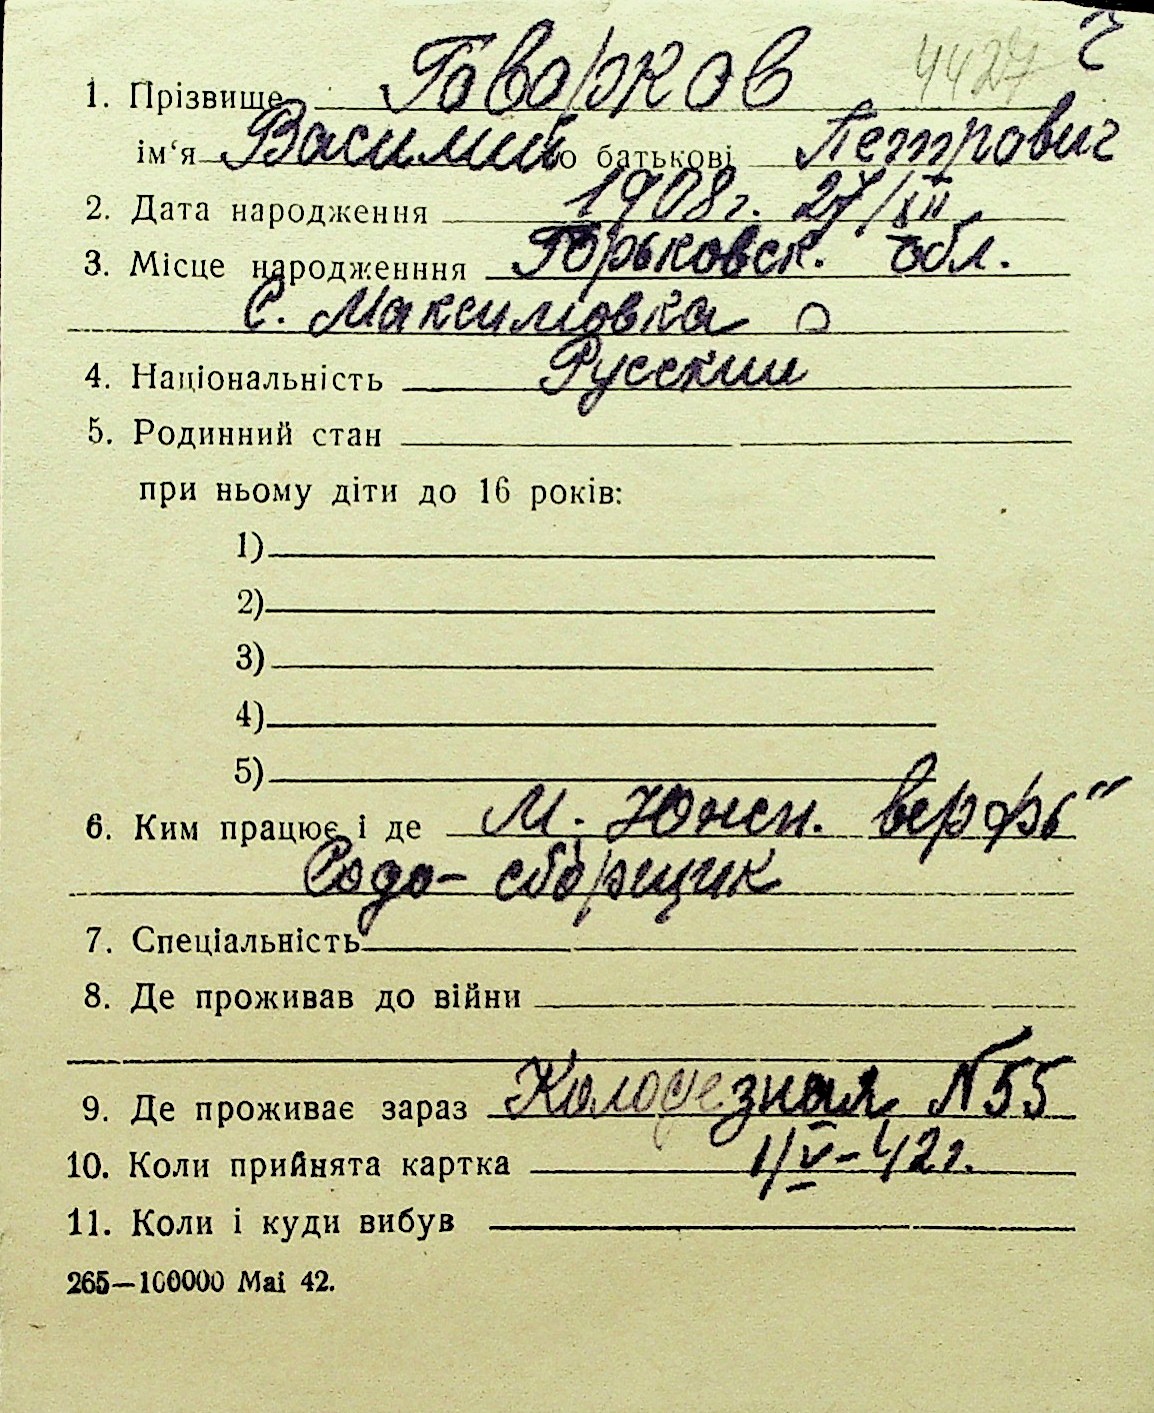 4427
1. Прізвище Говорков
ім'я Василий по батькові Петрович
2. Дата народження 1908 г. 27/III
3. Місце народженння Горьковск. обл.
с. Максимовка
4. Національність Русский
5. Родинний стан
при ньому діти до 16 років:
1)
2)
3)
4)
5)
6. Ким працює і де М. Южн. верфь"
сборщик
7. Спеціальність
8. Де проживав до війни
9. Де проживає зараз Колодезная N 55
10. Коли прийнята картка 1/V-42 г.
11. Коли і куди вибув
265—100000 Mai 42.